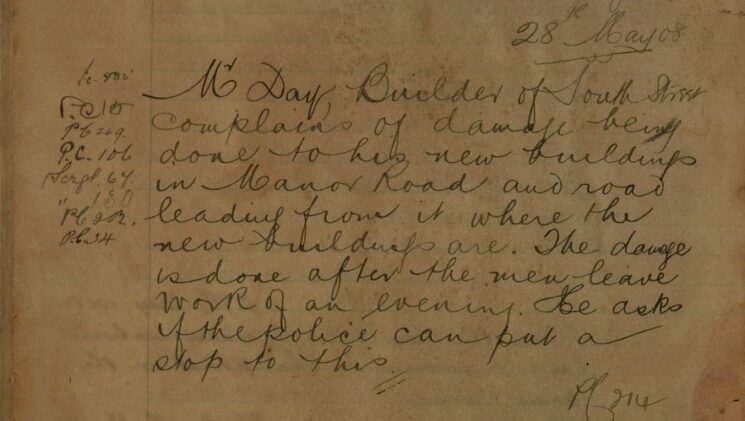 28th May 08
Mr Day, Builder of South Street
complains of damage being
done to his new buildings
in Manor Road and road
leading from it where the
new buildings are. The damage
is done after the men leave
work of an evening. He asks
if the police can put a
stop to this.
PC 214
P.C. 10
PC 269.
P.C. 106
Sergt. 67.
" 180
PC 202.
P.C. 34